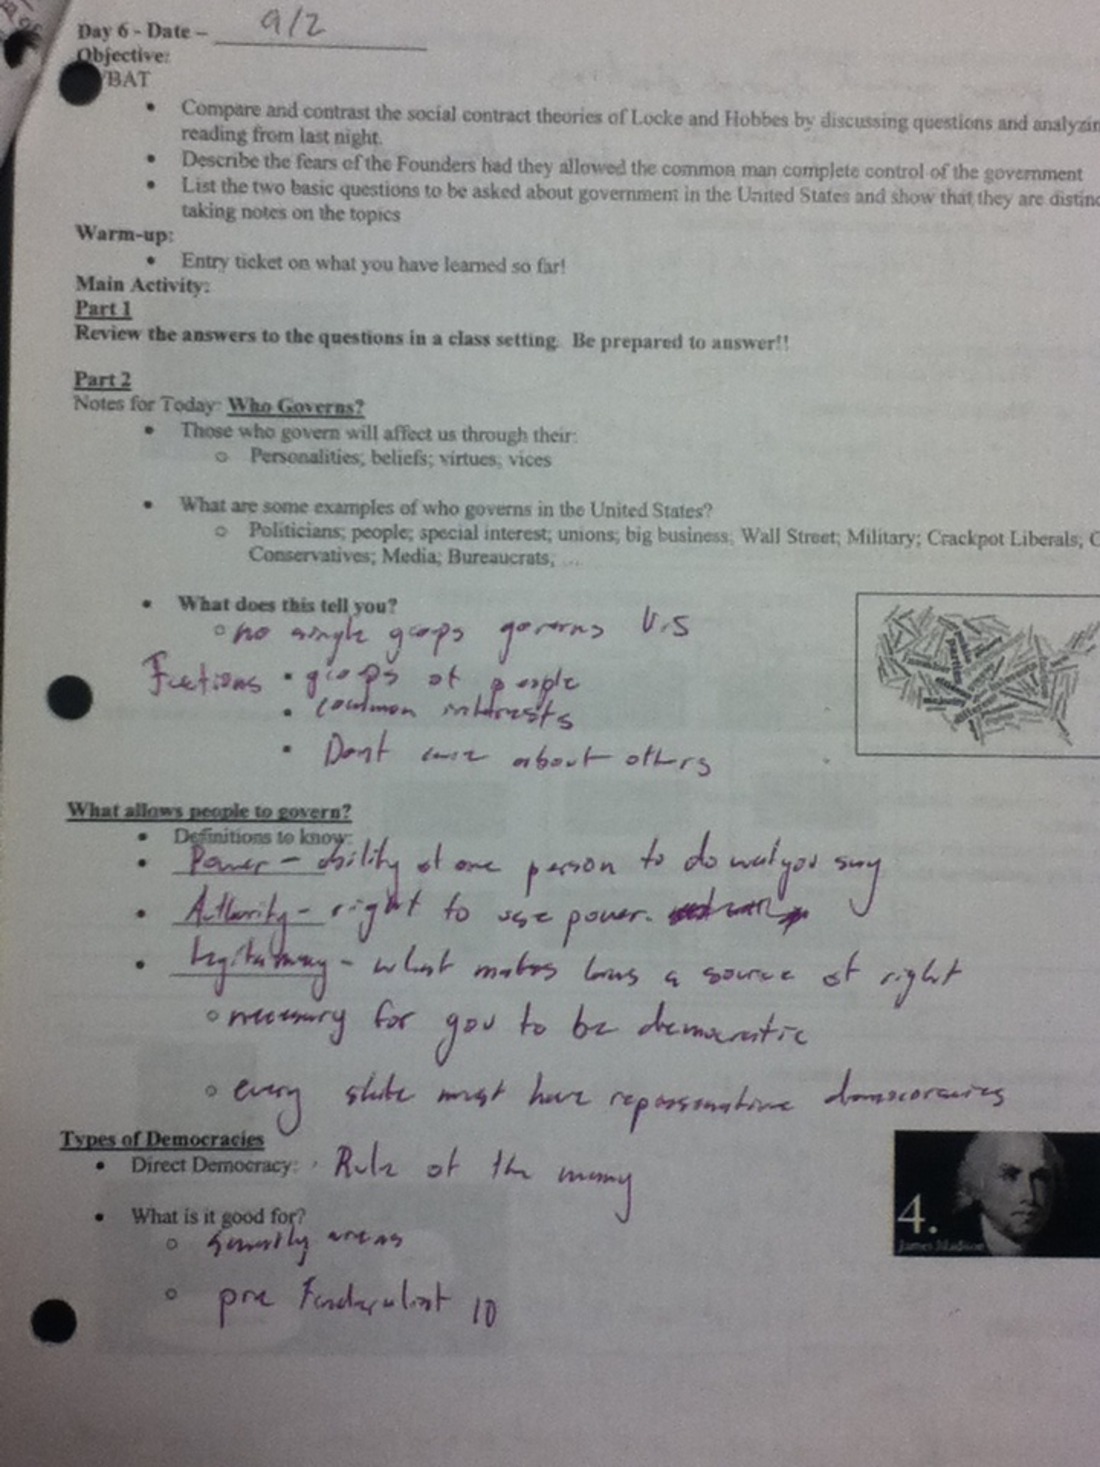 Day 6 - Date – 9/2
Objective:
BAT
• Compare and contrast the social contract theories of Locke and Hobbes by discussing questions and analyzin
reading from last night.
• Describe the fears of the Founders had they allowed the common man complete control of the government
• List the two basic questions to be asked about government in the United States and show that they are distinc
taking notes on the topics
Warm-up:
• Entry ticket on what you have learned so far!
Main Activity:
Part 1
Review the answers to the questions in a class setting. Be prepared to answer!!
Part 2
Notes for Today: Who Governs?
• Those who govern will affect us through their:
o Personalities; beliefs; virtues, vices
• What are some examples of who governs in the United States?
o Politicians; people; special interest; unions; big business; Wall Street; Military; Crackpot Liberals; C
Conservatives; Media; Bureaucrats, ...
• What does this tell you?
o no single groops governs U.S
Factions • groops of people
• common interests
• Dont care about others
What allows people to govern?
• Definitions to know:
• Power – ability of one person to do wat you say
• Authority – right to use power.
• – what makes laws a source of right
o necessary for gov to be democratic
o every state must have democoracies
Types of Democracies
• Direct Democracy: Rule of the many
• What is it good for?
o areas
o 10
4.
James Madison